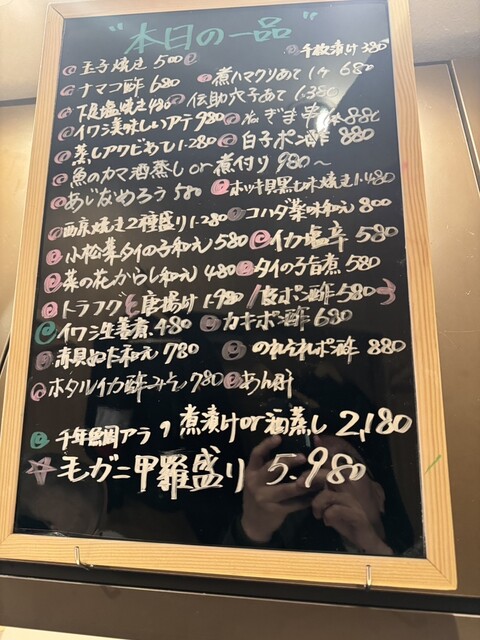 "本日の一品"
玉子焼き 500 千枚漬け 380
ナマコ酢 680 煮ハマクリあて 1ヶ 680
下足塩焼き 480 伝助穴子あて 1.380
イワシ美味しいアテ 980 ねぎま串 880
蒸しアワビあて 1.280 白子ポン酢 880
魚のカマ酒蒸し or 煮付り 980〜
あじなめろう 580 ホッキ貝黒七味焼き 1.480
西京焼き2種盛り 1.280 コハダ薬味和え 800
小松菜タイの子和え 580 イカ塩辛 580
菜の花からし和え 480 タイの子旨煮 580
トラフグ 唐揚げ 1.980 / 皮ポン酢 580
イワシ生姜煮 480 カキポン酢 680
赤貝ぬた和え 780 のれそれポン酢 880
ホタルイカ酢みそ 780 あん肝
千年鯛アラ 煮漬け or 酒蒸し 2,180
毛ガニ甲羅盛り 5.980